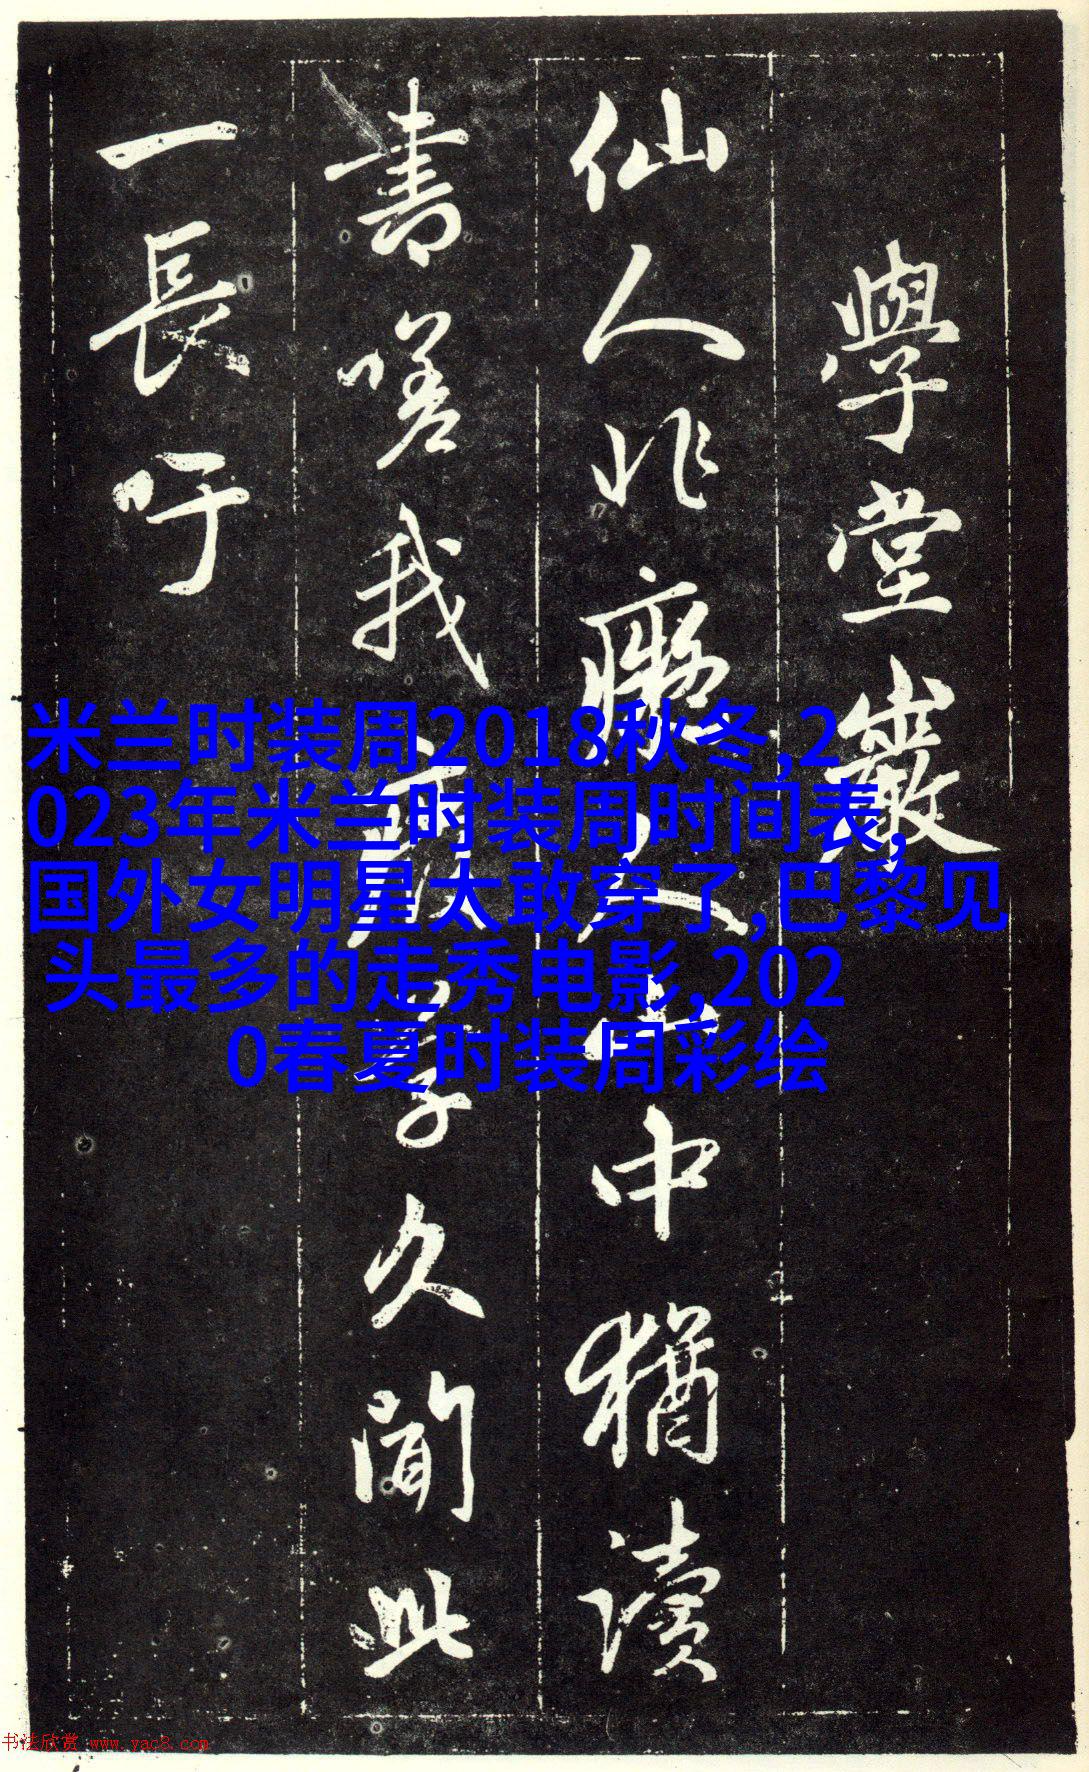 學堂巖
仙人非癡人山中猶讀
書嗟我廢學久聞此
一長吁
米兰时装周2018秋冬,2
023年米兰时装周时间表,
国外女明星太敢穿了,巴黎见
头最多的走秀电影,202
0春夏时装周彩绘
书法欣赏 www.yac8.com